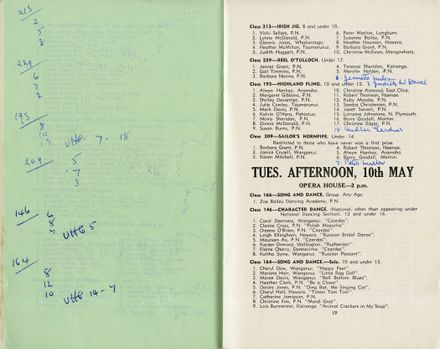 213
2
5
8
229
6
7
2
193
8
10
13 VHC 7. 18
209
5
7
3
146
6
8
5 VHC 5
164
8
12
10 VHC 14-7
Class 213—IRISH JIG. 8 and under 10.
1. Vicki Sellars, P.N.
2. Lynne McDonald, P.N.
3. Glennis Jones, Whakarongo.
4. Heather McMillan, Taumarunui.
5. Judith Huggett, P.N.
6. Peter Marlow, Longburn.
7. Suzanne Bailey, P.N.
8. Heather Hayman, Hawera.
9. Barbara Grant, P.N.
10. Christine McEwan, Mangawhata.
Class 229—REEL O'TULLOCH. Under 17.
1. Jennet Grant, P.N.
2. Gail Timmins, P.N.
3. Barbara Nairne, P.N.
4. Terence Sheridan, Kairanga.
5. Merylin Holden, P.N.
Class 193—HIGHLAND FLING. 10 and under 12.
1. Alwyn Hankey, Aramoho.
2. Margaret Gibbons, P.N.
3. Shirley Deventer, P.N.
4. Julie Cowley, Taumarunui.
5. Mark Denis, P.N.
6. Kelvin O'Hara, Patictua.
7. Moira Sheridan, P.N.
8. Donna McDonald, P.N.
9. Susan Burns, P.N.
10. Christine Astwood, East Clive.
11. Robert Thomson, Naenae.
12. Ruby Mooda, P.N.
13. Sandra Christensen, P.N.
14. Janet Sievert, P.N.
15. Lorraine Johnstone, N. Plymouth.
16. Barry Goodall, Marton.
17. Christine Edgar, P.N.
Class 209—SAILOR'S HORNPIPE. Under 14.
Restricted to those who have never won a first prize.
1. Barbara Grant, P.N.
2. Janice Costell, Wanganui.
3. Karen Mitchell, P.N.
4. Robert Thomson, Naenae.
5. Alwyn Hankey, Aramoho.
6. Barry Goodall, Marton.
TUES. AFTERNOON, 10th MAY
OPERA HOUSE—2 p.m.
Class 166—SONG AND DANCE. Group. Any Age.
1. Zoe Bailey Dancing Academy, P.N.
Class 146—CHARACTER DANCE. (National, other than appearing under
National Dancing Section). 13 and under 16.
1. Carol Dearness, Wanganui. "Czardas".
2. Cheona Cross, P.N. "Polish Mazurka".
3. Dianne O'Brien, P.N. "Czardas".
4. Leigh Ellingham, Hawera. "Russian Bridal Dance".
5. Maureen Ax, P.N. "Czardas".
6. Karlen Ormond, Wellington. "Ruthenian".
7. Elaine Cherry, Dannevirke. "Czardas".
8. Kalitha Syme, Wanganui. "Russian Peasant".
Class 164—SONG AND DANCE.—Solo. 10 and under 13.
1. Cheryl Dow, Wanganui. "Happy Feet"
2. Marlene Mair, Wanganui. "Little Rag Doll".
3. Maree Davis, Wanganui. "Bell Bottom Blues".
4. Heather Clark, P.N. "Be a Clown".
5. Desire Jones, P.N. "Ding Bat, the Singing Cat".
6. Cheryl Hall, Hawera. "Totem Tom Tom".
7. Catherine Jamieson, P.N.
8. Christine Fon, P.N. "Mardi Gras"
9. Lois Burmeister, Kairanga. "Animal Crackers in My Soup".
19